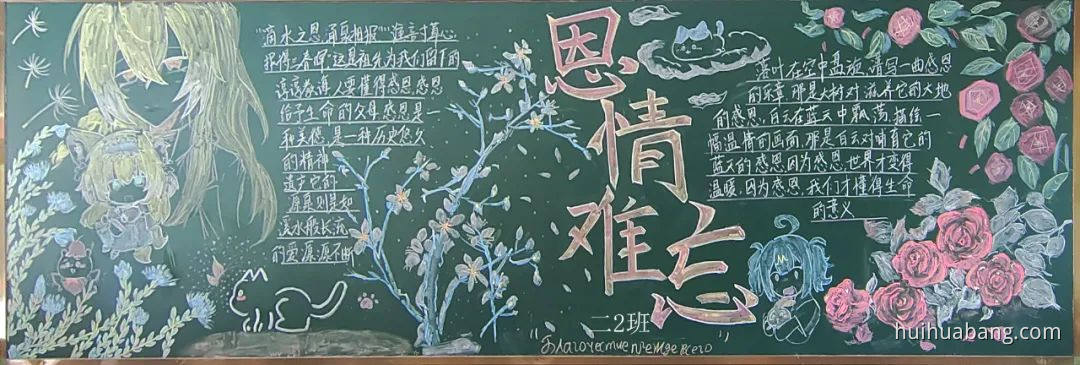 "滴水之恩,涌泉相报""谁言寸草心
报得三春晖"这是祖先为我们留下的
谆谆教诲人要懂得感恩,感恩
给予生命的父母感恩是一
和美德,是一种历史悠久
的精神
遗产它的
源泉则是如
溪水般长流
的爱源源不断
恩情难忘
落叶在空中盘旋,谱写一曲感恩
的乐章,那是大树对滋养它的大地
的感恩,白云在蓝天中飘荡,描绘一
幅温情的画面,那是白云对哺育它的
蓝天的感恩因为感恩,世界才变得
温暖,因为感恩,我们才懂得生命
的意义
二2班
"Благочестие прежде всего"
huihuabang.com